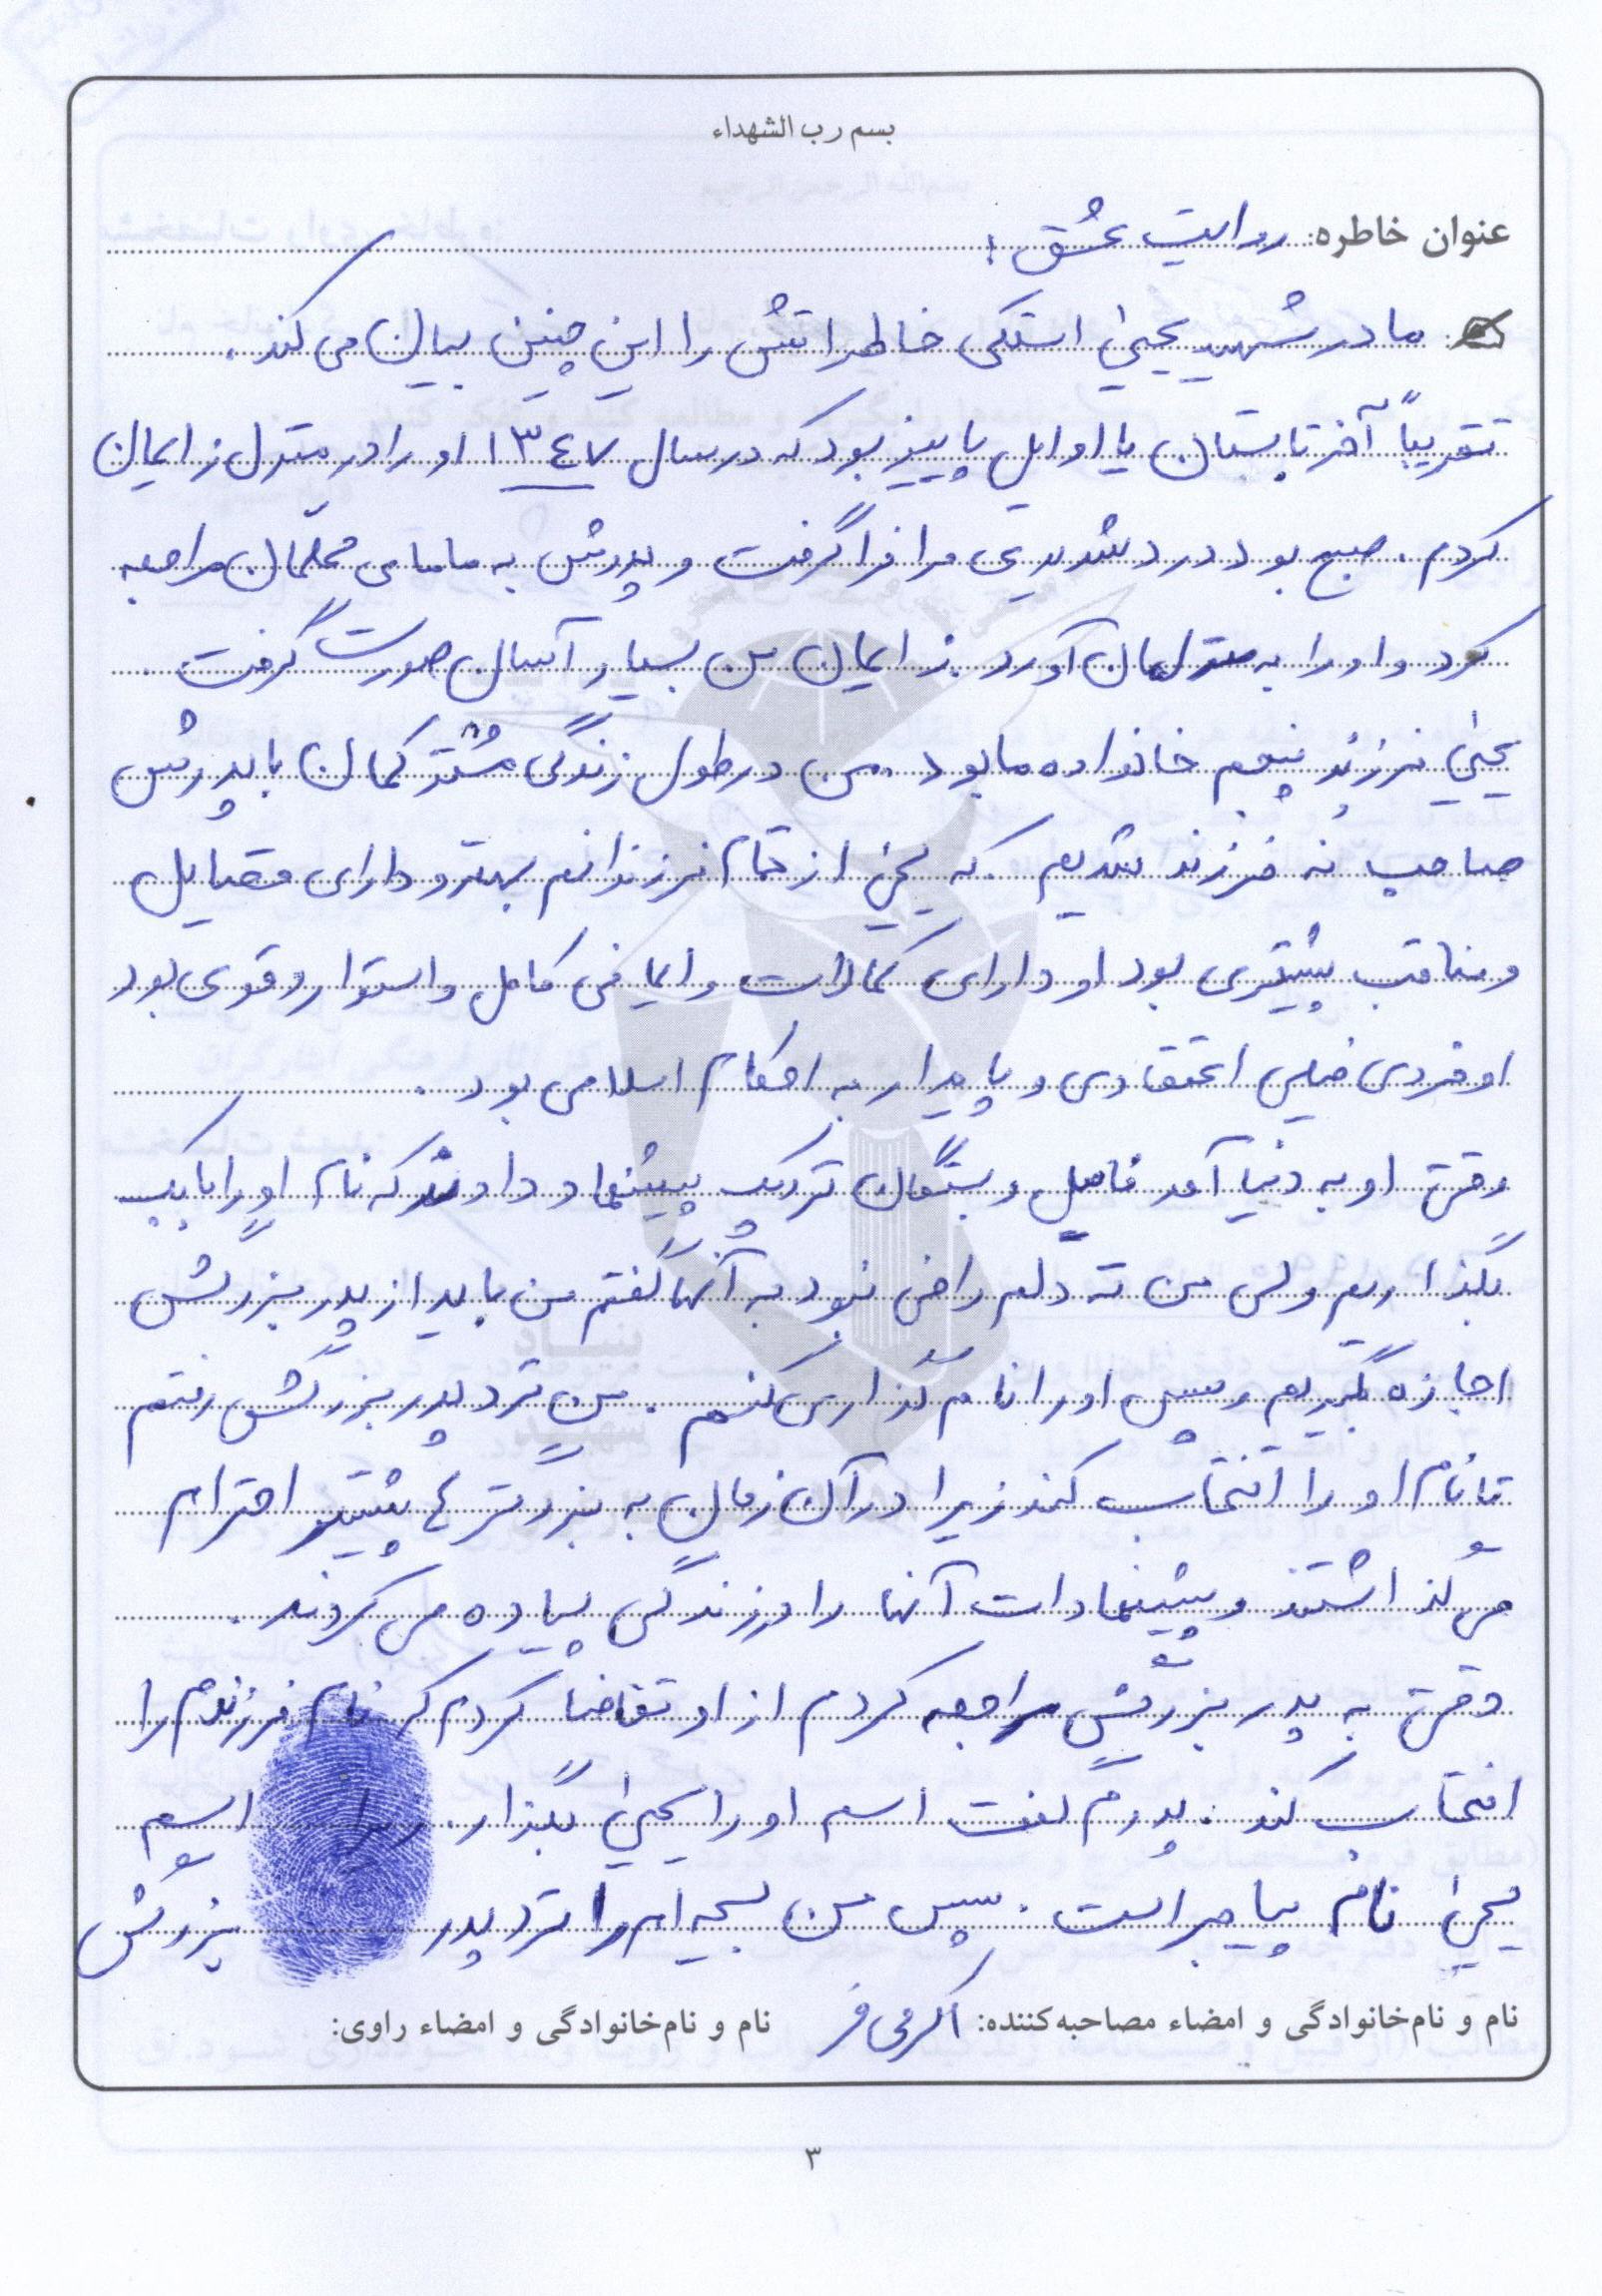 بسم رب الشهداء
عنوان خاطره: روایت عشق :
مادر شهید یحیی استکی خاطراتش را این چنین بیان می کند.
تقریباً آخر تابستان یا اوایل پاییز بود که در سال ۱۳۴۷ او را در منزل زایمان
کردم . صبح بود درد شدیدی مرا فرا گرفت و پدرش به مامای محلمان مراجعه
کرد و او را به منزلمان آورد . زایمان من بسیار آسان صورت گرفت .
یحیی فرزند پنجم خانواده ما بود . من در طول زندگی مشترکمان با پدرش
صاحب نه فرزند شدیم . که یحیی از تمام فرزندانم بهتر و دارای فضایل
و مناقب بیشتری بود او دارای کمالات و ایمانی کامل و استوار و قوی بود
او فردی خیلی اعتقادی و پایدار به احکام اسلامی بود .
وقتی او به دنیا آمد فامیل و بستگان نزدیک پیشنهاد دادند که نام او را بابک
بگذاریم ولی من ته دلم راضی نبود به آنها گفتم من باید از پدر بزرگش
اجازه بگیریم و سپس او را نام گذاری کنم . من نزد پدر بزرگش رفتم
تا نام او را انتخاب کند زیرا در آن زمان به بزرگتر ها بیشتر احترام
می گذاشتند و پیشنهادات آنها را در زندگی پیاده می کردند .
وقتی به پدر بزرگش مراجعه کردم از او تقاضا کردم که نام فرزندم را
انتخاب کند . پدرم گفت اسم او را یحیی بگذار . زیرا اسم
یحیی نام پیامبر است . سپس من بچه ام را نزد پدر بزرگش
نام و نام‌خانوادگی و امضاء مصاحبه‌کننده: اکرمی فر نام و نام‌خانوادگی و امضاء راوی:
۳